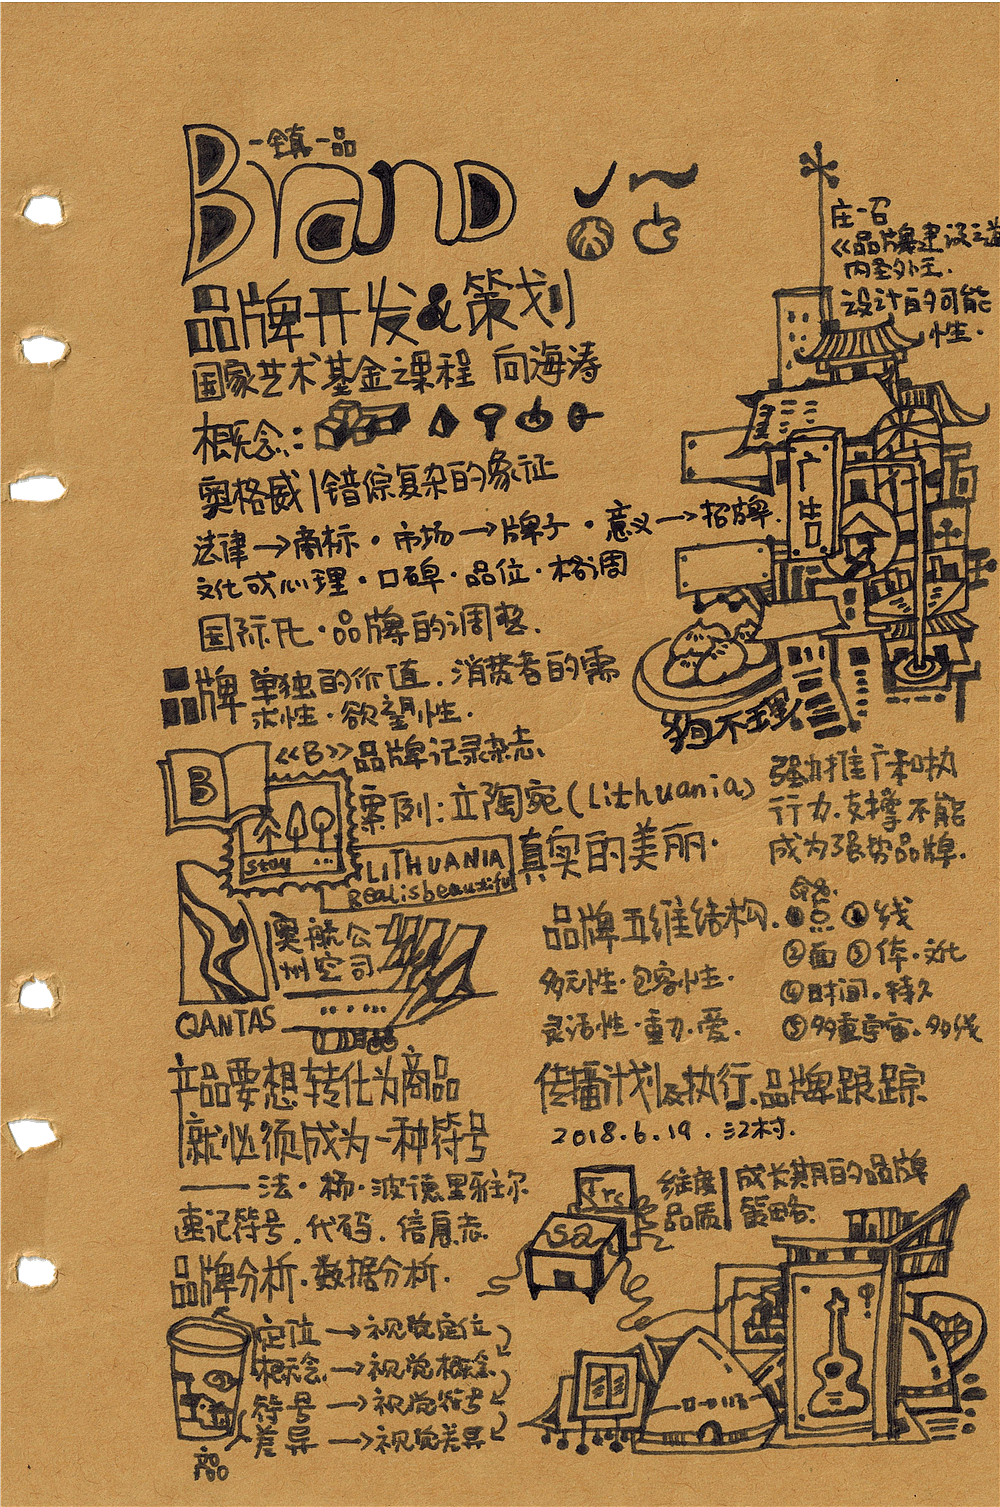 一镇一品
Brand
品牌开发&策划
国家艺术基金课程 向海涛
概念:
奥格威|错综复杂的象征
法律→商标·市场→牌子·意义→招牌.
文化或心理·口碑·品位·格调
国际化·品牌的调整.
品牌 单独的价值.消费者的需
求性·欲望性.
《B》品牌记录杂志
B
案例:立陶宛(Lithuania)
真实的美丽·
Stay ...
LITHUANIA
Realisbeautiful
澳航公
州空司
QANTAS
产品要想转化为商品
就必须成为一种符号
——法·杨·波德里雅尔
速记符号.代码.信息志.
品牌分析.数据分析.
定位→视觉定位
概念→视觉概念
符号→视觉符号
差异→视觉差异
商品
庄一召
《品牌建设之道
内圣外王.
设计的可能
性.
广告
狗不理
强力推广和执
行力.支撑不能
成为强势品牌.
品牌五维结构.
多元性·包容性.
灵活性·重力.爱.
①点 ①线
②面 ③体.文化
④时间.持久
⑤多重宇宙.多线
传播计划及执行.品牌跟踪
2018.6.19.江村.
维度
品质
成长期的品牌
策略.